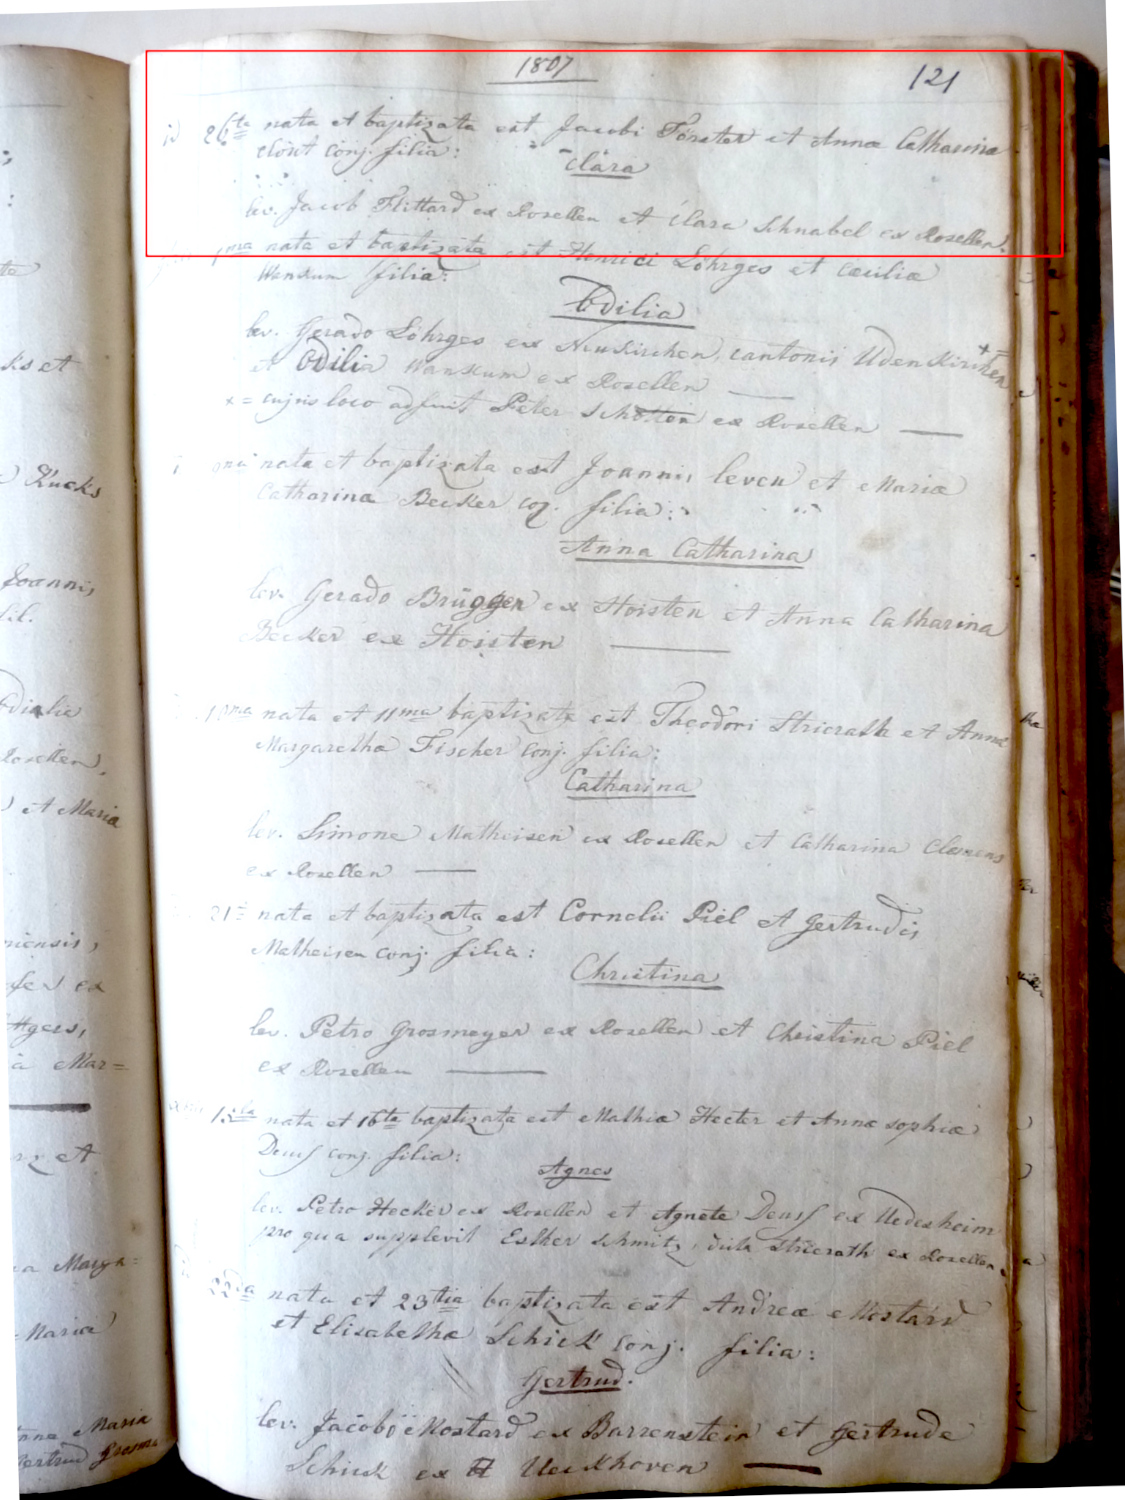 1807
121
26ta nata et baptizata est Jacobi Förster et Annæ Catharinæ
Clout conj. filia:
Clara
lev. Jacob Flittard ex Rosellen et Clara Schnabel ex Rosellen.
1ma nata et baptizata est Henrici Löhrges et Cæciliæ
Wanxum filia:
Odilia
lev. Gerado Löhrges ex Neukirchen, cantonis Udenkirchen +
et Odilia Wanxum ex Rosellen
x = cujus loco adfuit Peter Schotten ex Rosellen
nata et baptizata est Joannis leven et Mariæ
Catharinæ Becker coj. filia:
Anna Catharina
lev. Gerado Brüggen ex Hoisten et Anna Catharina
Becker ex Hoisten
10ma nata et 11ma baptizata est Theodori Stricrath et Annæ
Margarethæ Fischer conj. filia:
Catharina
lev. Simone Matheisen ex Rosellen et Catharina Clemens
ex Rosellen
21 nata et baptizata est Cornelii Piel et Gertrudis
Matheisen conj. filia:
Christina
lev. Petro Grosmeyer ex Rosellen et Christina Piel
ex Rosellen
15ta nata et 16ta baptizata est Mathiæ Hecter et Annæ sophiæ
Deuss conj. filia:
Agnes
lev. Petro Hecker ex Rosellen et Agnete Deuss ex Uedesheim
pro qua supplevit Esther Schmitz, dicta Stricrath ex Rosellen.
22dia nata et 23tia baptizata est Andreæ Mostard
et Elisabethæ Schick conj. filia:
Gertrud.
lev. Jacobo Mostard ex Barrenstein et Gertrude
Schick ex Ueckhoven
ks et
Kucks
Joannis
fil.
Odiliæ
Rosellen,
et Maria
niensis,
ex
a Mar=
et
Marga=
Maria
Anna Maria
Gertrud Grosme